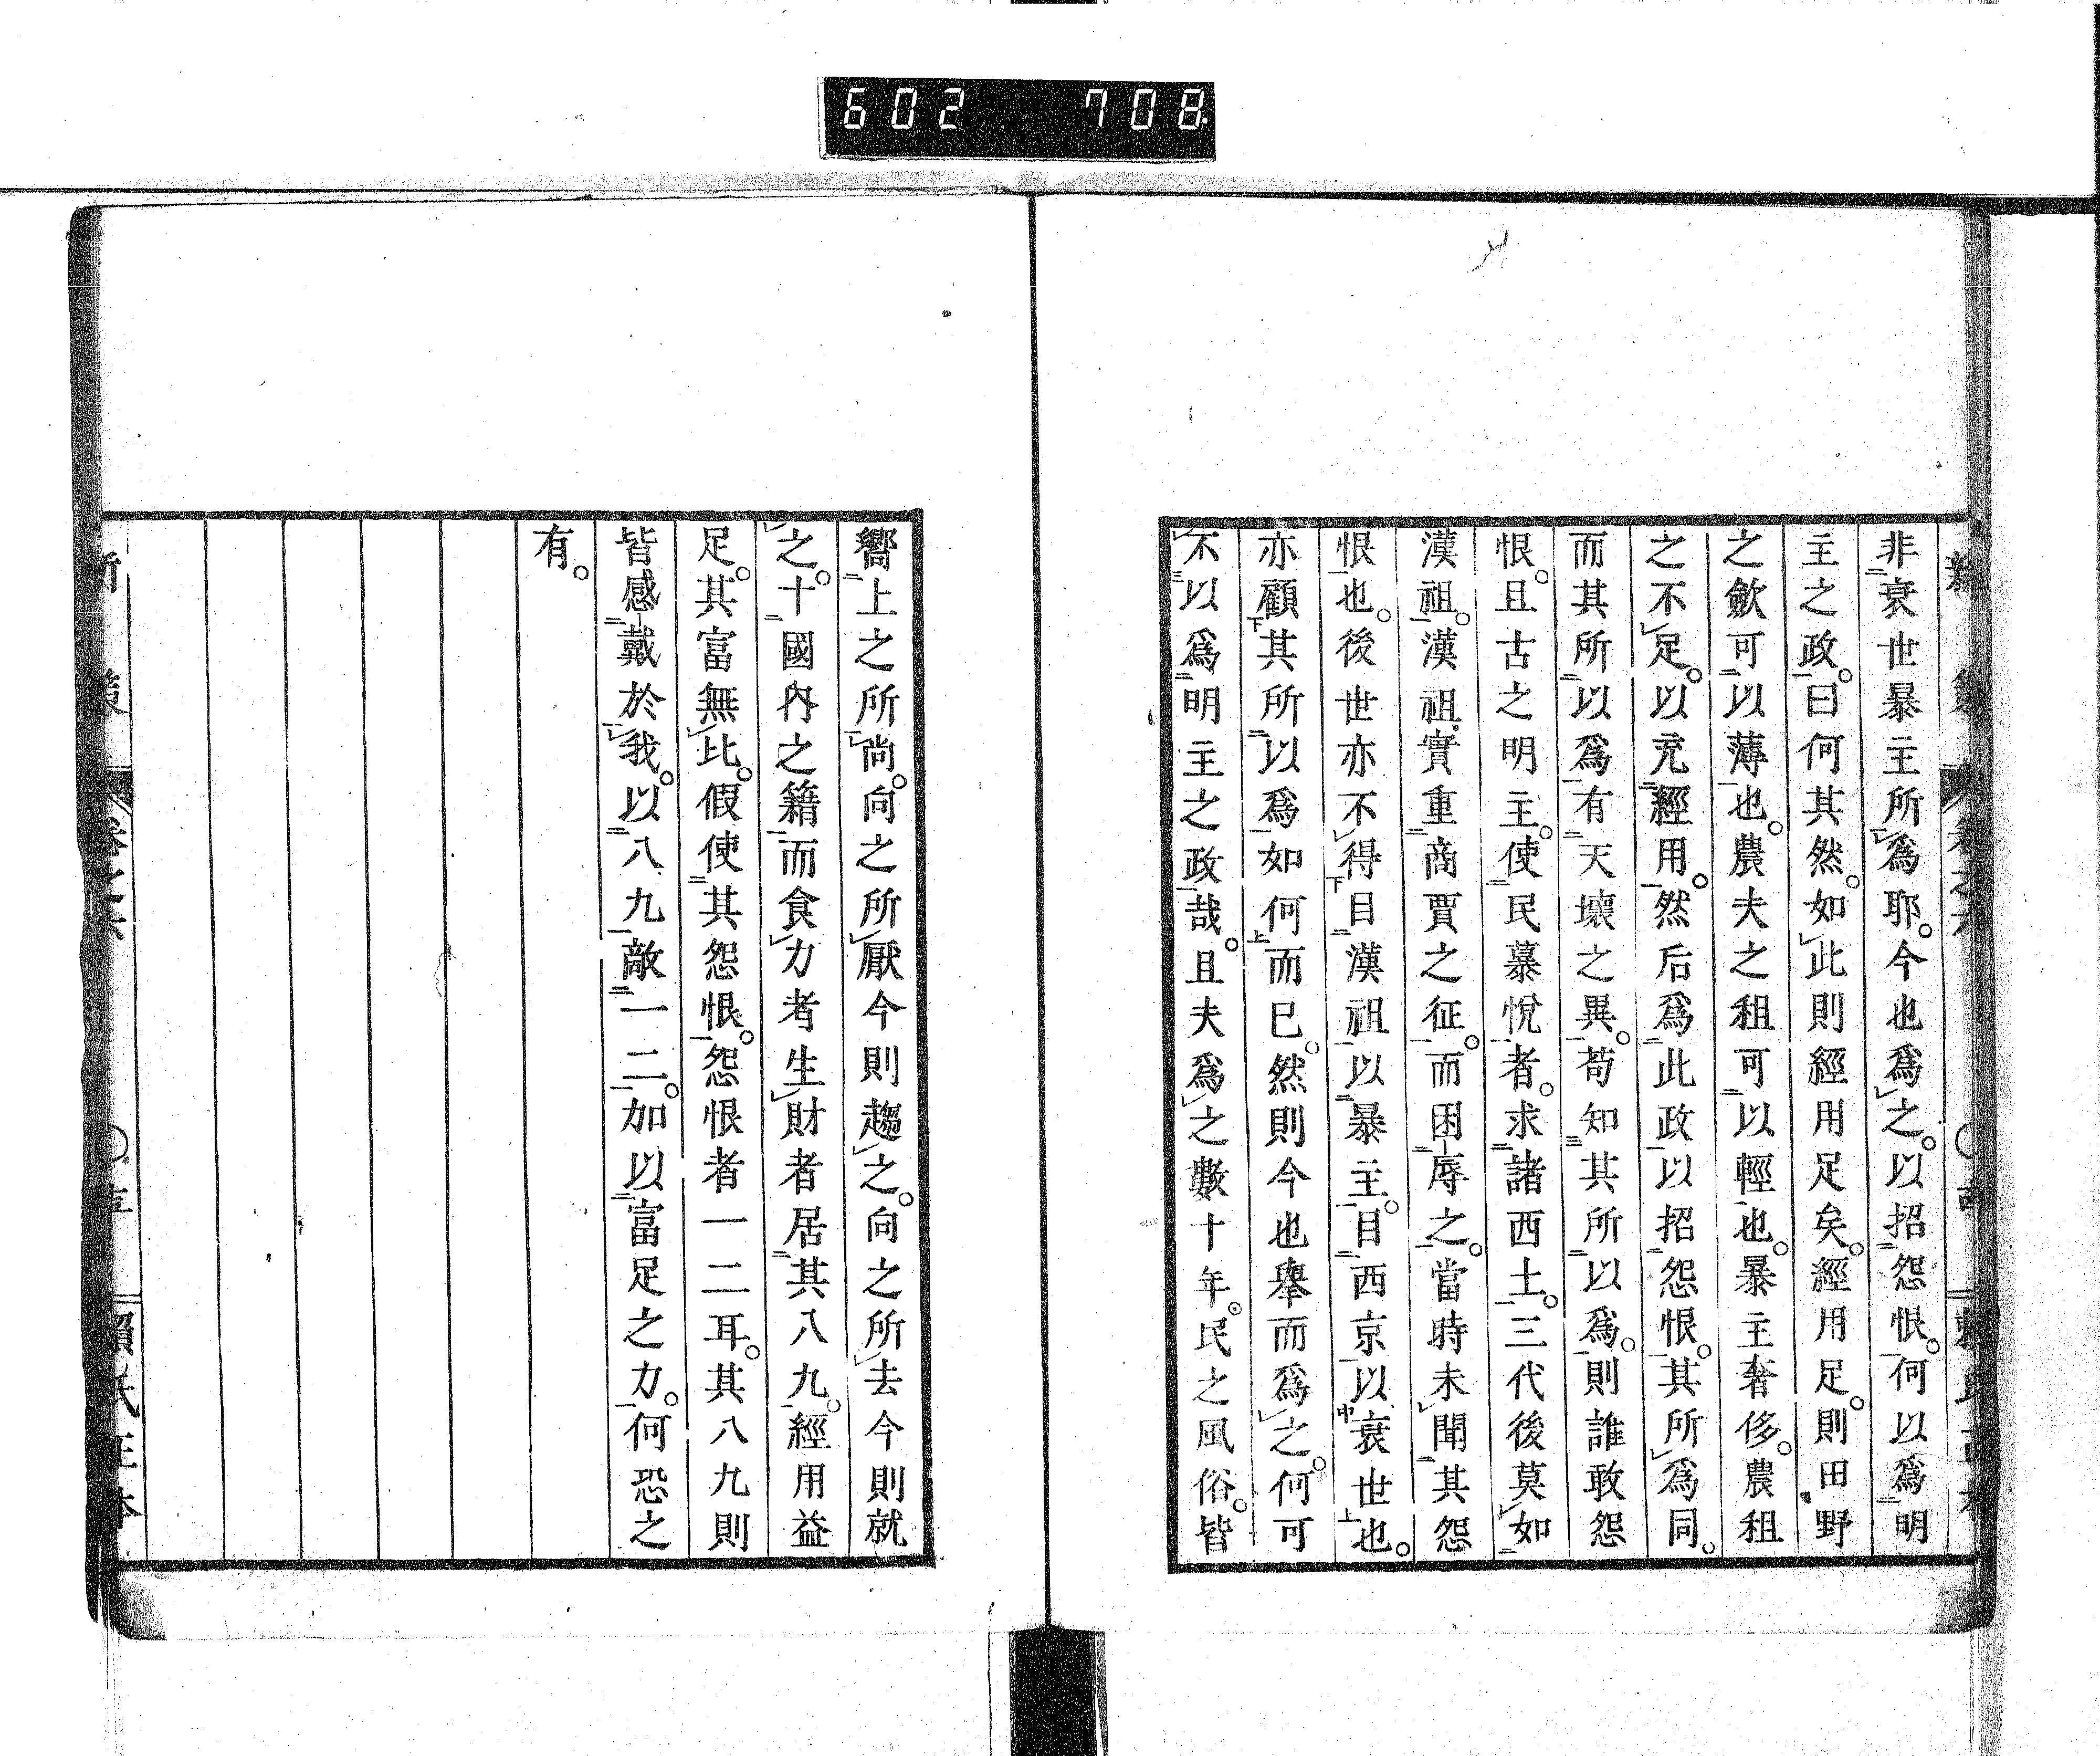 602 708
非衰世暴主所爲耶。今也爲之。以招怨恨。何以爲明
主之政。曰何其然。如此則經用足矣。經用足。則田野
之歛可以薄也。農夫之租可以輕也。暴主奢侈。農租
之不足。以充經用。然后爲此政以招怨恨。其所爲同。
而其所以爲有天壤之異。苟知其所以爲。則誰敢怨
恨。且古之明主。使民慕悅者。求諸西土。三代後莫如
漢祖。漢祖實重商賈之征。而困辱之。當時未聞其怨
恨也。後世亦不得目漢祖以暴主。目西京以衰世也。
亦顧其所以爲如何而已。然則今也舉而爲之。何可
不以爲明主之政哉。且夫爲之數十年。民之風俗。皆
嚮上之所尚。向之所厭今則趨之。向之所去今則就
之。十國內之籍而食力者生財者居其八九。經用益
足。其富無比。假使其怨恨。怨恨者一二耳。其八九則
皆感戴於我。以八九敵一二。加以富足之力。何恐之
有。